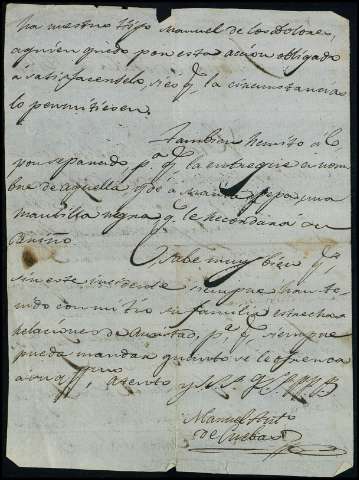 ra nuestro hijo Manuel de los Dolores,
a quien quedo por esta accion obligado
á satisfacersela, si es q.e la circunstancias
lo permitiesen.
Tambien remito á V.
por separado p.a q.e la entregue a nom
bre de aquella á mi Pepa una
mantilla negra q.e le recordará su
cariño.
Sabe muy bien q.e
sin este incidente siempre han te
nido con mi tio su familia estrechas
relaciones de amistad, p.r q.e siempre
puede mandar quanto se le ofrezca
a su afmo, atento y S. S. Q. S. M. B.
Manuel Ant.o
de Cuebas